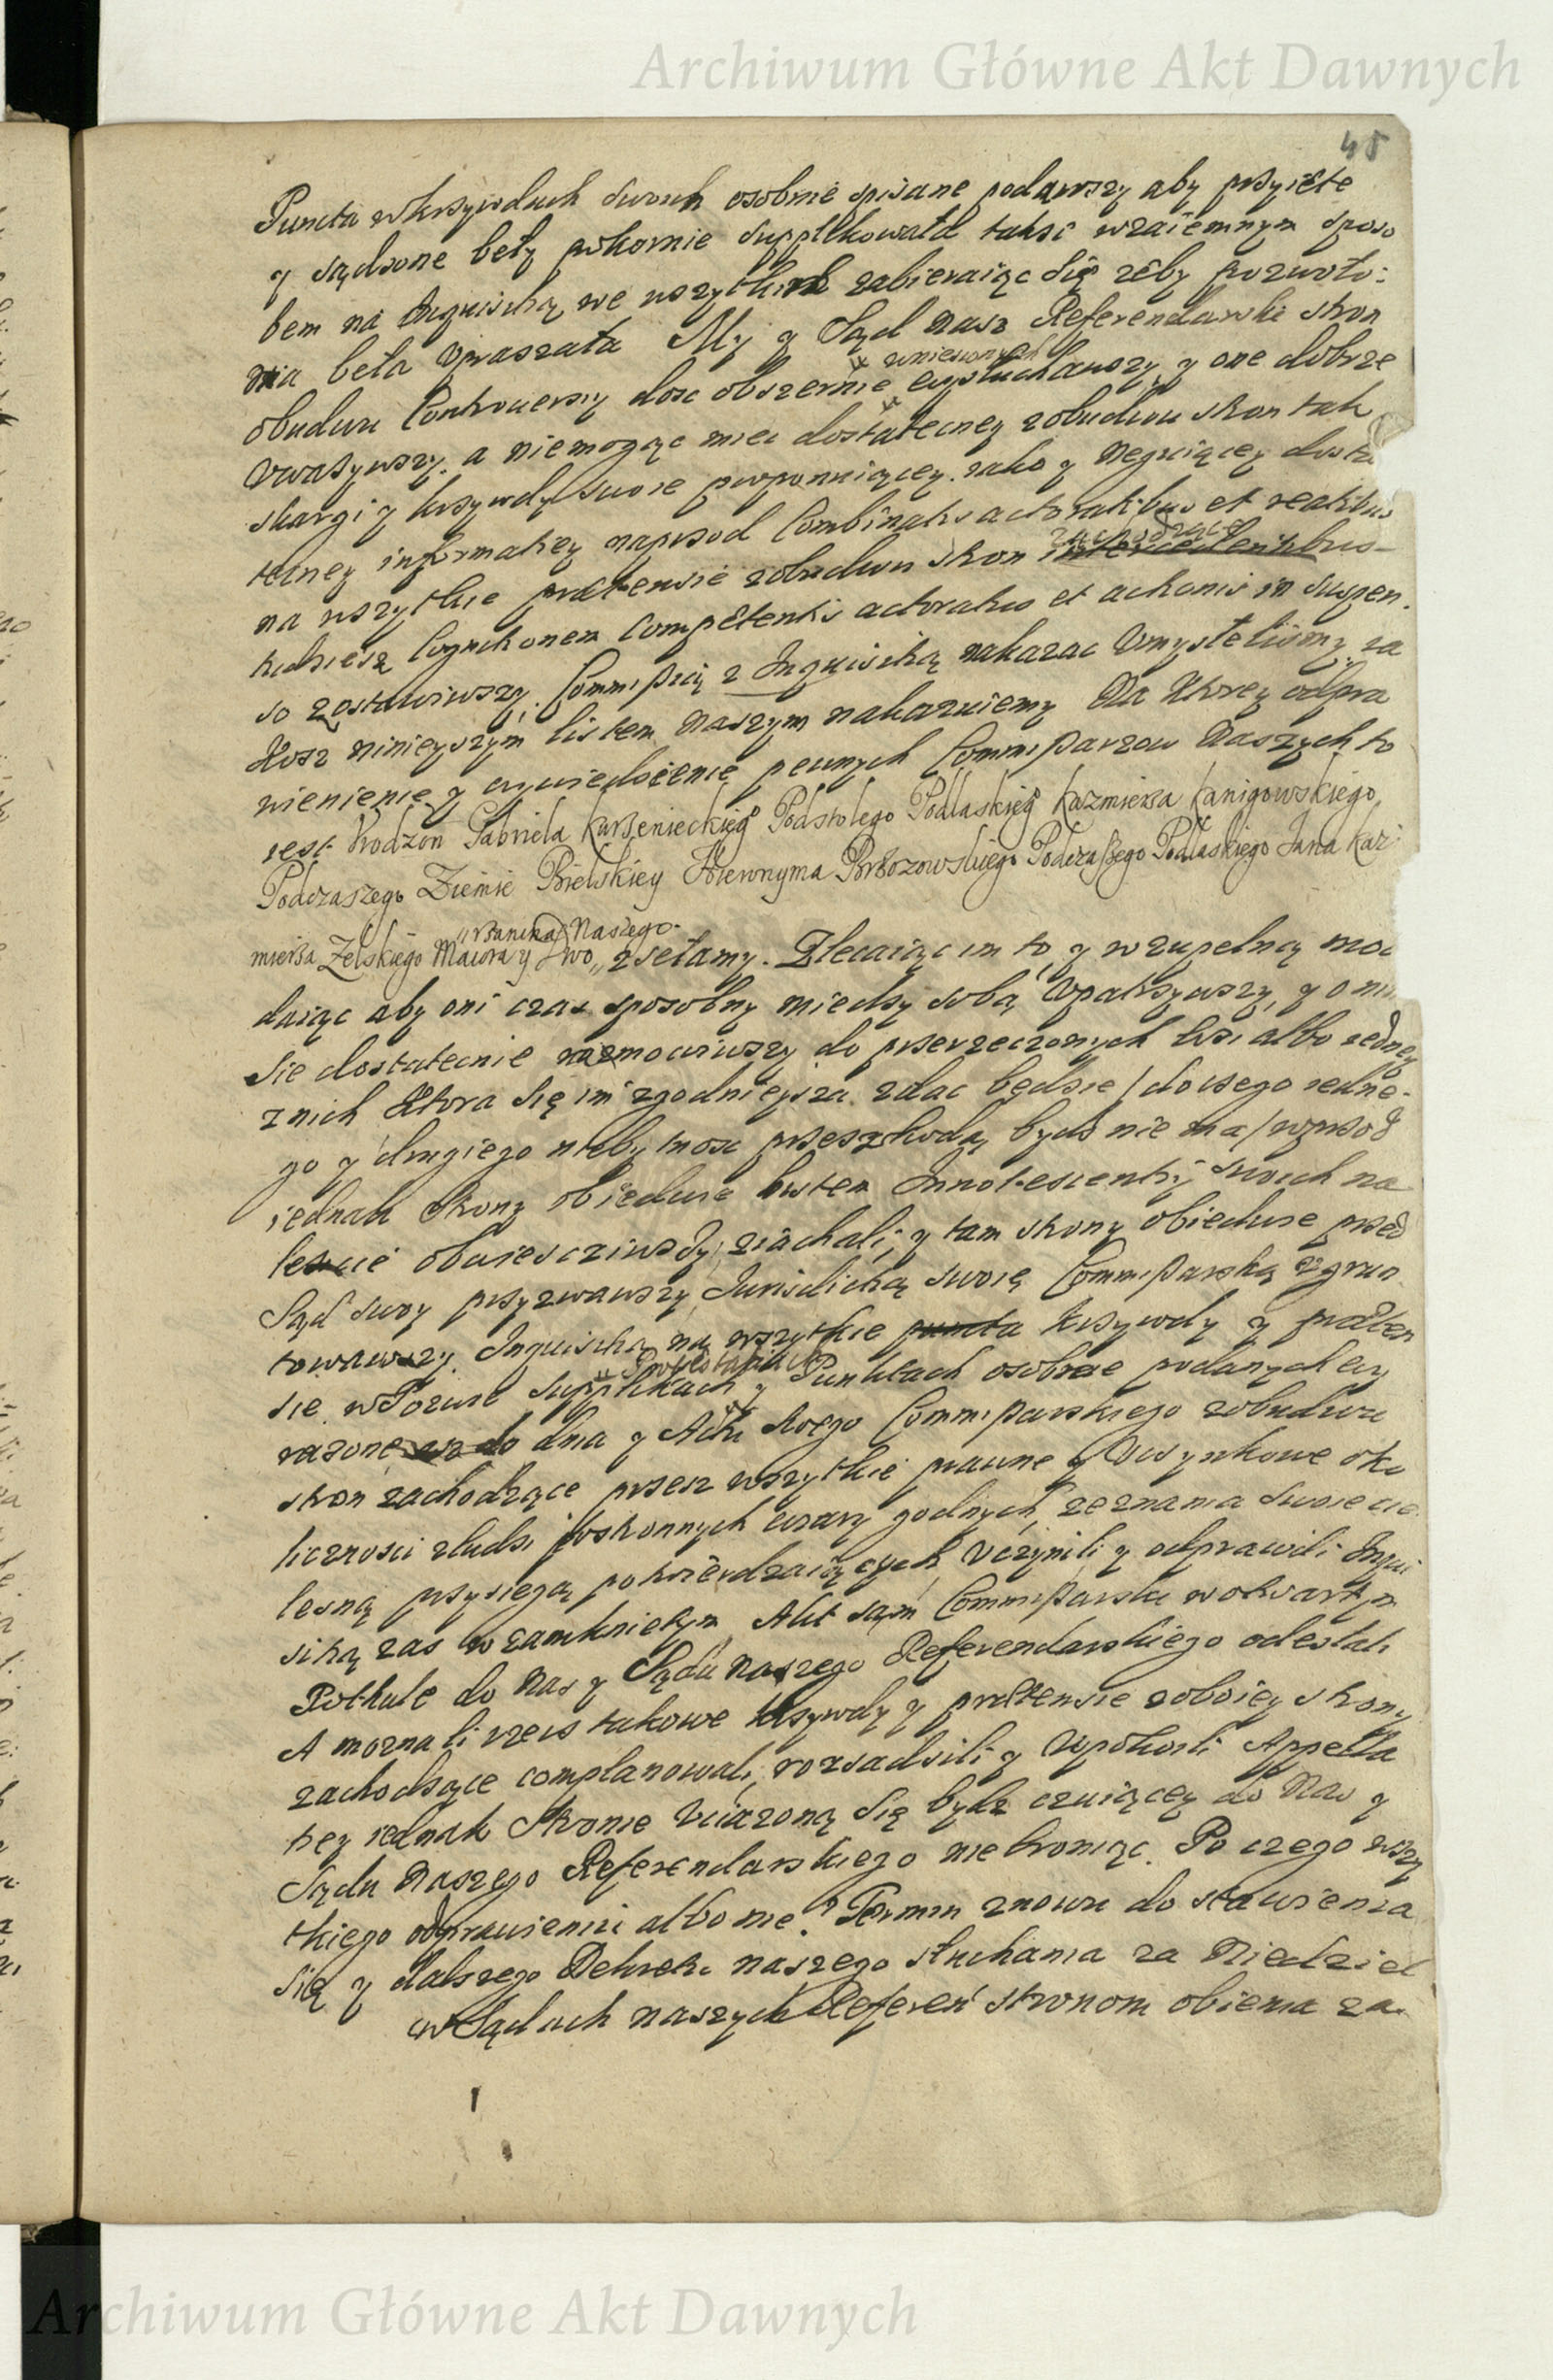 Archiwum Główne Akt Dawnych
45
Puncta w krzywdach swoich osobnie spisane podawszy aby przyięte
y sądzone beły pokornie supplikowała takze wzaiemnym sposo
bem na Inquisitią we wszytkich zabieraiąc się zeby pozwolo:
nia beła vpraszała My y Sąd Nasz Referendarski stron
wniesionych
obudwu Controuersiy dosc obszernie wysłuchawszy y one dobrze
vwazywszy a niemogąc miec dostateczney zobudwu stron tak
skargi y krzywdy swoie proponuiącey iako y Neguiącey dosta
teczney informatiey naprzod Combinatis actoratibus et reatibus
zachodzące
na wszytkie praetensie zobudwu stron intercedentibus
tudziesz Cognitionem Competentis actoratus et actionis in suspen
so zostawiwszy, Commissią z Inquisitią nakazac vmysleliśmy ia
kosz ninieyszym listem Naszym nakazuiemy Na ktorey odpra
wienienie y wywiedzienie pewnych Commissarzow Naszych to
iest Urodzon Gabriela Kurzenieckieg° Podstolego Podlaskieg° Kazmierza Kanigowskiego
Podczaszego Ziemie Bielskiey Hieronyma Brzozowskiego Podczaszego Podlaskiego Jana Kazi
Naszego
mierza Zelskiego Maiora y Dwo zsełamy. Zlecaiąc im to y w zupelną moc
daiąc aby oni czas sposobny miedzy sobą vpatrzywszy y o nim
sie dostatecznie rozmowiwszy do przerzeczonych Wsi albo iedney
z nich ktora się im zgodnieysza zdac będzie / do czego iedne
go y drugiego niebytnosc przeszkodą bydz nie ma / wprzod
iednak Strony obiedwie listem Innotescentiy swoich na
lescie obwiesciwszy, ziachali, y tam strony obiedwie przed
Sąd swoy przyzwawszy, Jurisdictią swoią Commissarską vgrun
towawszy. Inquisitią na wszytkie puncta krzywdy y praeten
Protestatiach
sie w Pozwie Supplikach y Punktach osobne podanych wy
razone az do dnia y Actu swego Commissarskiego zobudwu
stron zachodzące przez wszytkie prawne y vczynkowe oko
licznosci zludzi postronnych wiary godnych, zeznania swoie cie
lesną przysięgą potwierdzaiących, vczynili y odprawili Inqui
sitią zas w zamknietym Akt sam Commissarski w otwartym
Rothule do Nas y Sądu Naszego Referendarskiego odesłali
A mozna li rzecz takowe krzywdy y praetensie zoboiey strony
zachodzące complanowali, rozsadzili y vspokoili Appella
tiey iednak Stronie vciązoną się bydz czuiącey do Nas y
Sądu Naszego Referendarskiego niebroniąc. Po czego wszy
tkiego odprawieniu albo nie? Termin znowu do stawienia
się y dalszego Dekretu naszego słuchania za Niedziel
w Sądach naszych Referen stronom obiema za
Archiwum Główne Akt Dawnych